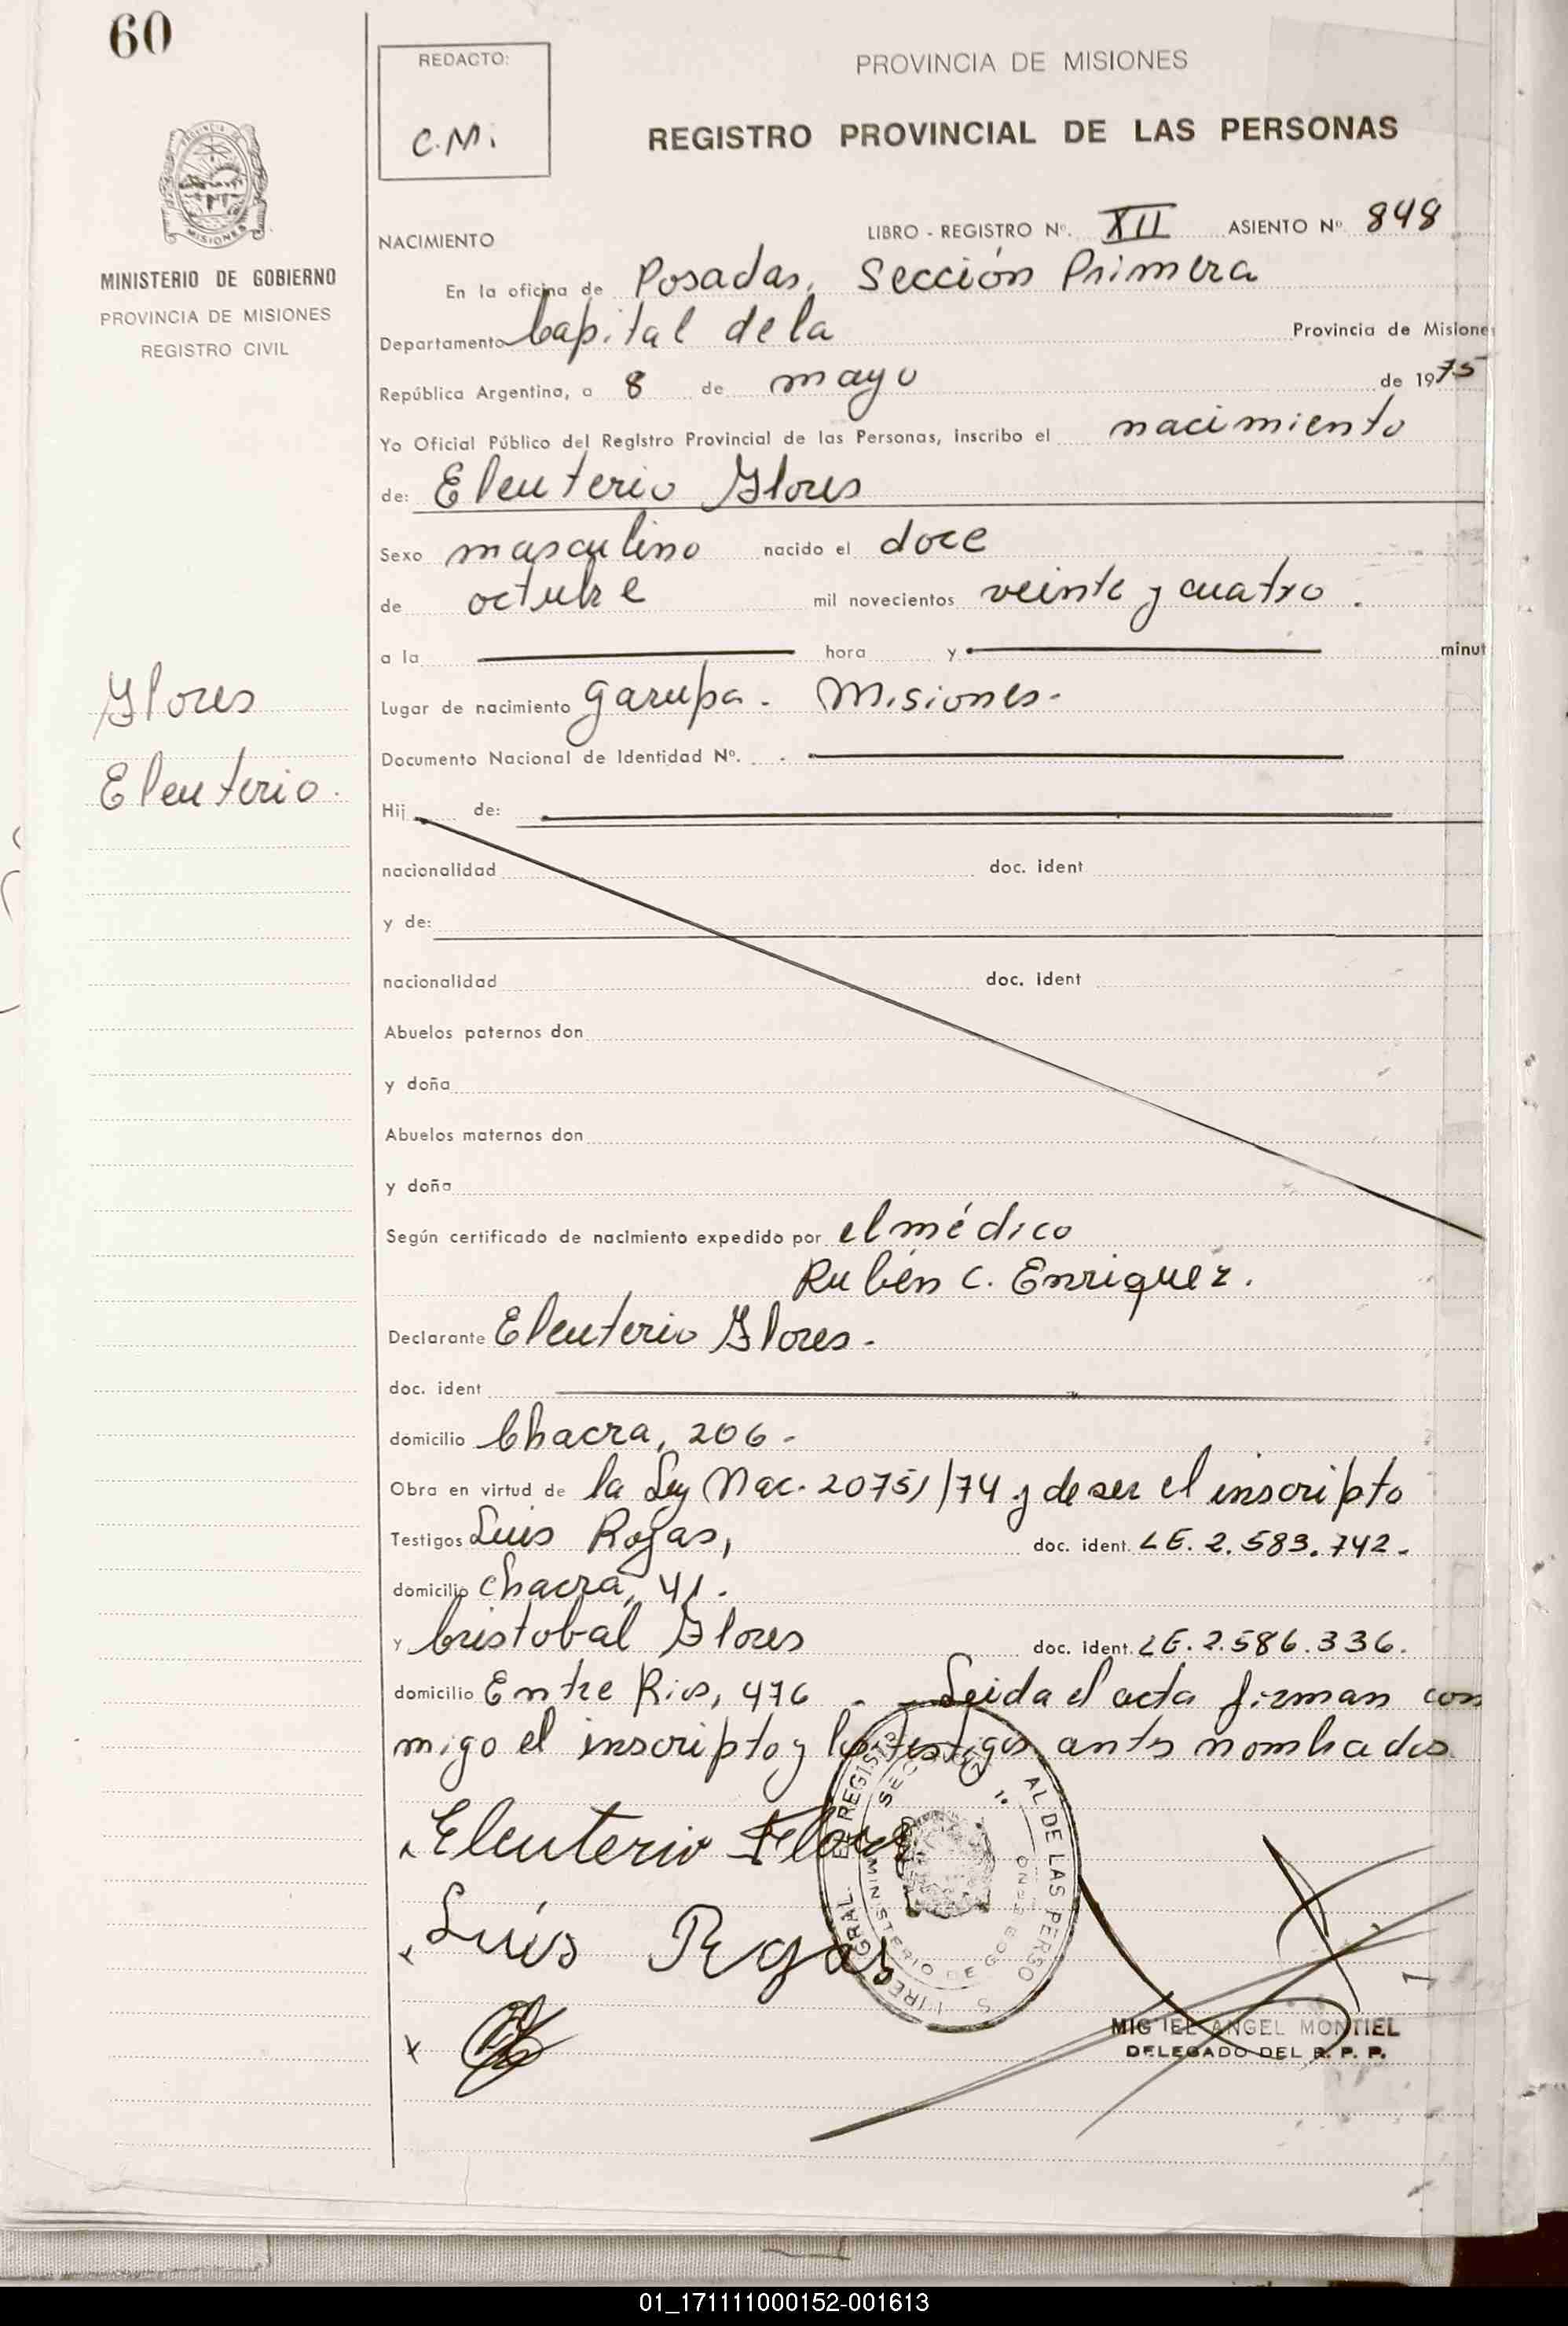 60
REDACTO:
C.M.
PROVINCIA DE MISIONES
REGISTRO PROVINCIAL DE LAS PERSONAS
MISIONES
MINISTERIO DE GOBIERNO
PROVINCIA DE MISIONES
REGISTRO CIVIL
NACIMIENTO
LIBRO - REGISTRO Nº. XII ASIENTO Nº 848
En la oficina de Posadas, Sección Primera
Departamento Capital de la Provincia de Misione
República Argentina, a 8 de mayo de 1975
Yo Oficial Público del Registro Provincial de las Personas, inscribo el nacimiento
de: Eleuterio Flores
Sexo masculino nacido el doce
de octubre mil novecientos veinte y cuatro.
a la hora y minut
Flores
Eleuterio.
Lugar de nacimiento Garupa. Misiones-
Documento Nacional de Identidad Nº.
Hij de:
nacionalidad doc. ident
y de:
nacionalidad doc. ident
Abuelos paternos don
y doña
Abuelos maternos don
y doña
Según certificado de nacimiento expedido por el médico
Rubén C. Enriquez.
Declarante Eleuterio Flores-
doc. ident
domicilio Chacra, 206-
Obra en virtud de la Ley Nac. 20751/74 y de ser el inscripto
Testigos Luis Rojas, doc. ident. LE. 2.583.742-
domicilio chacra, 41.
y Cristobal Flores doc. ident. LE. 2.586.336.
domicilio Entre Rios, 476 - Leida el acta firman con
migo el inscripto y los testigos antes nombrados
Eleuterio Flores
Luis Rojas
REGIS AL DE LAS PERSO
SEC 1º
MINISTERIO DE GOBIERNO
GRAL.
MIGUEL ANGEL MONTIEL
DELEGADO DEL R. P. P.
01_171111000152-001613